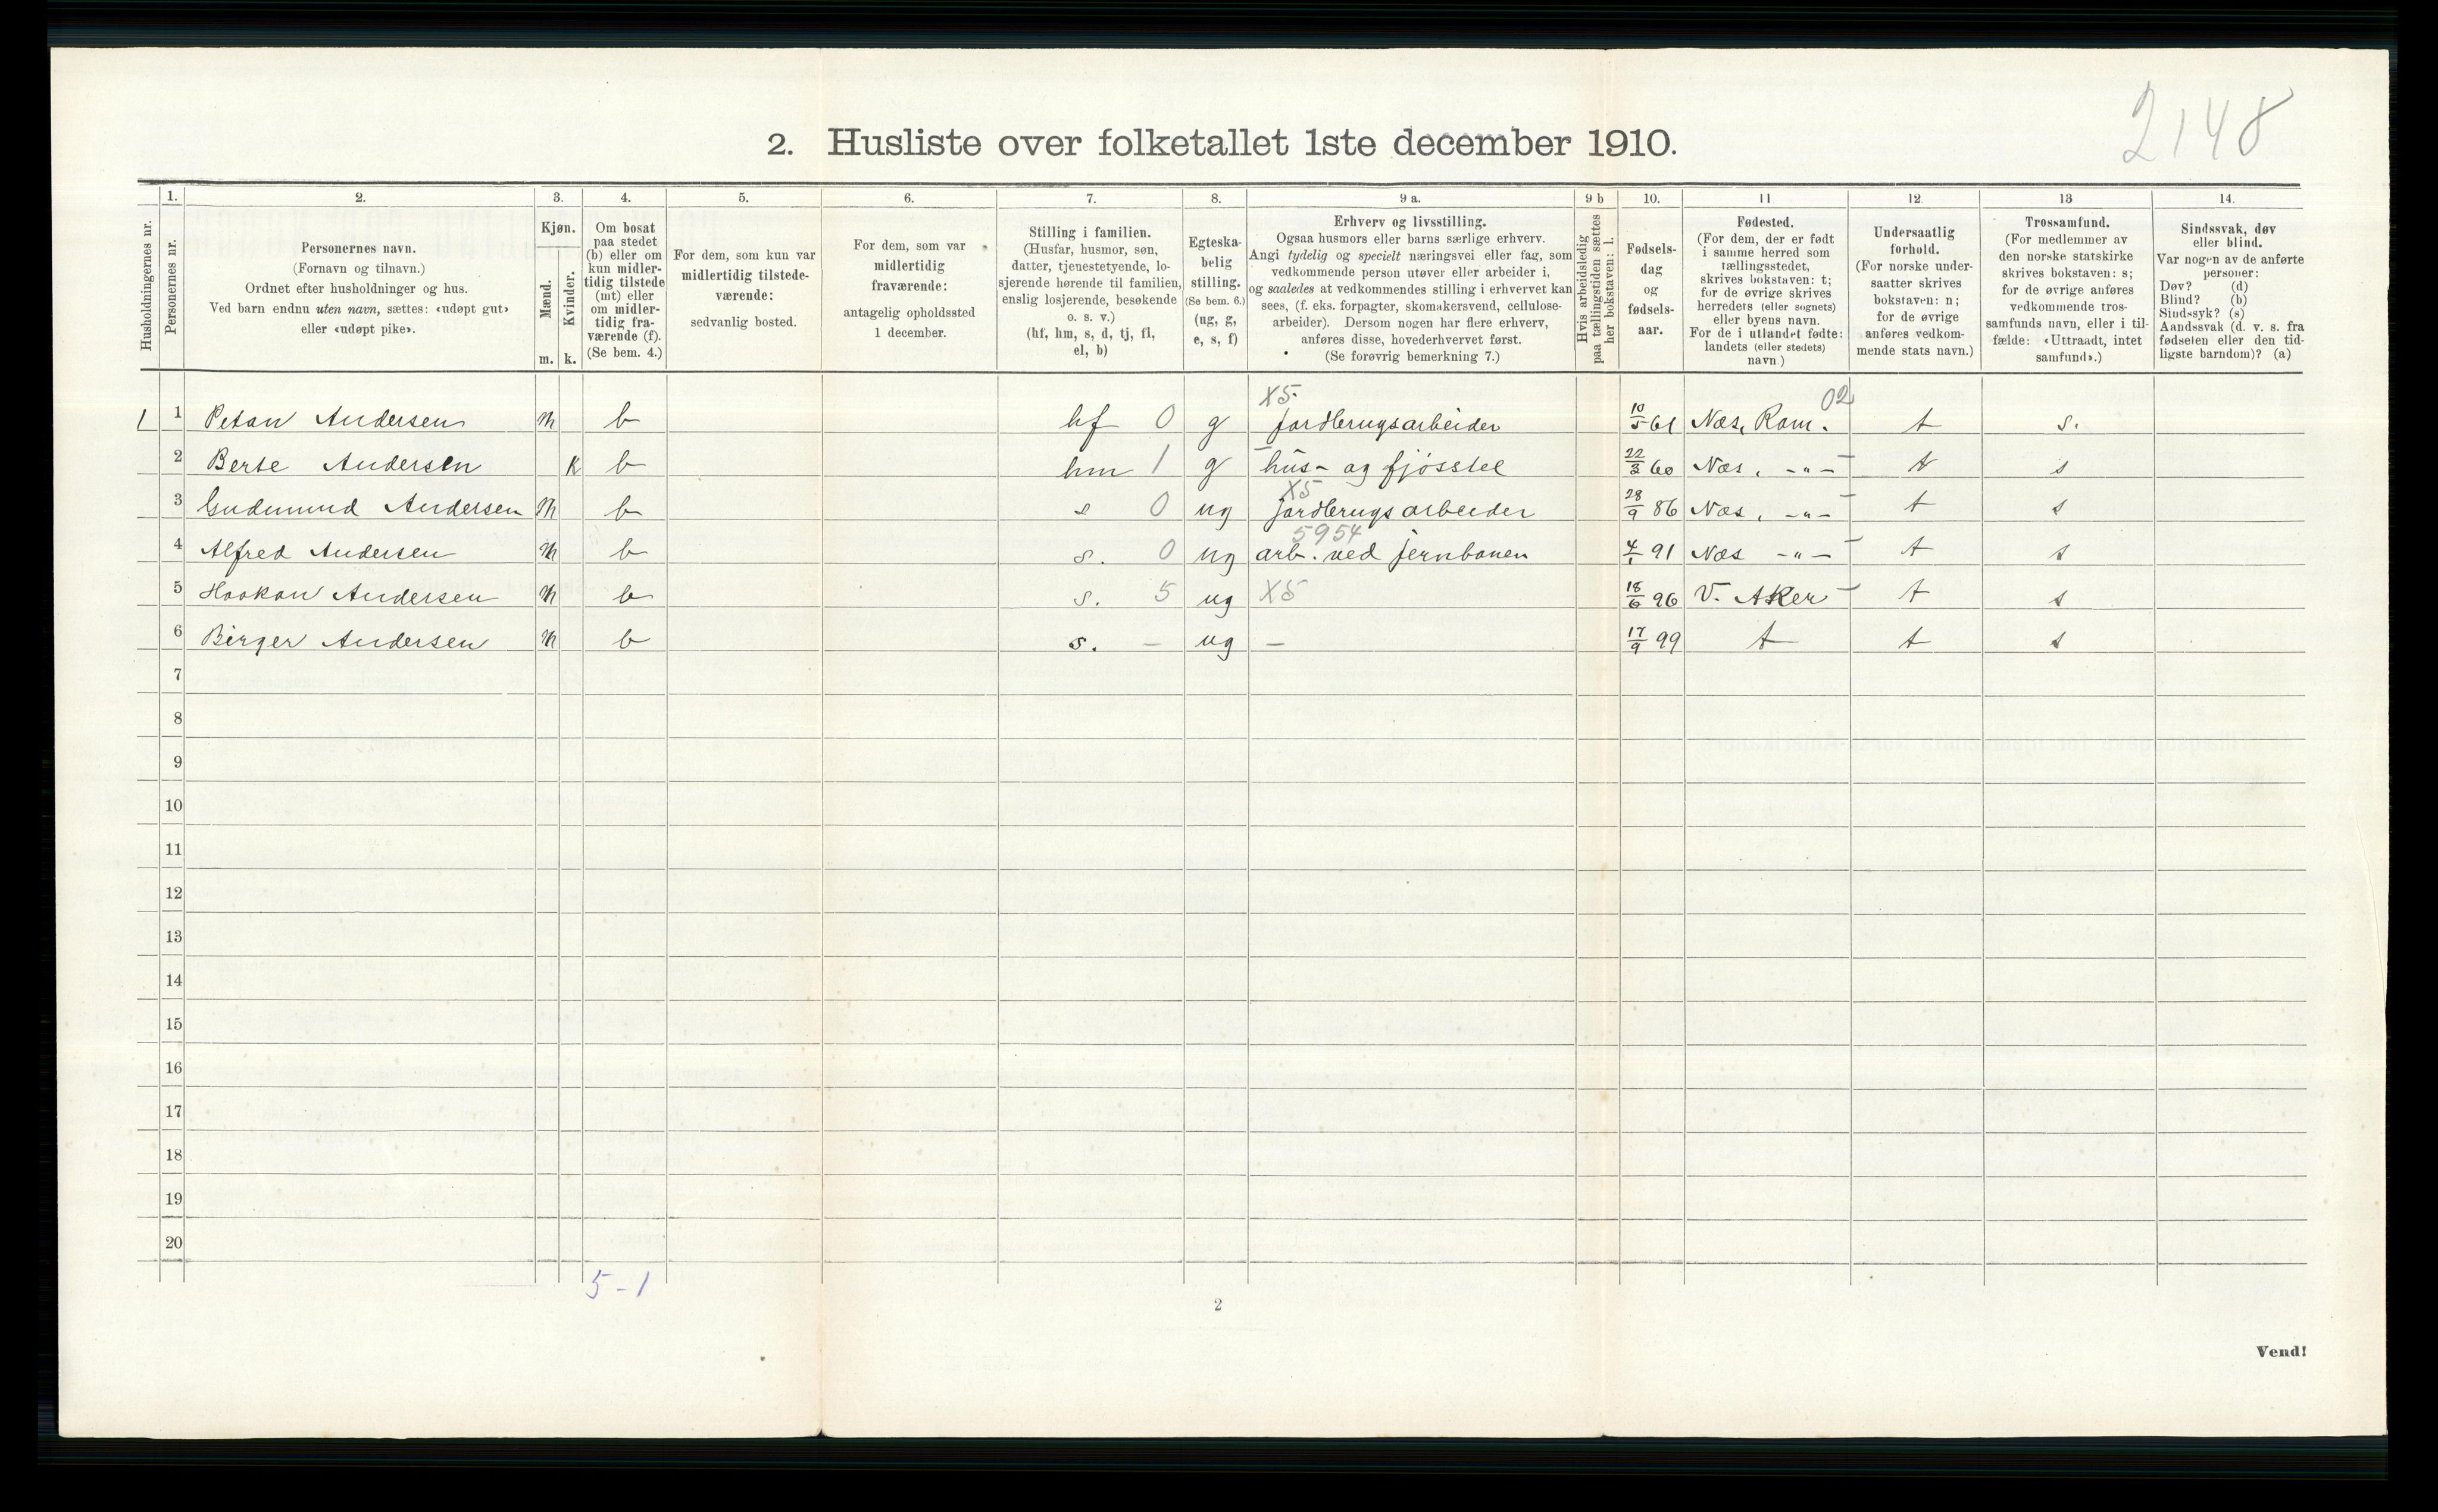 2148
2. Husliste over folketallet 1ste december 1910.
Husholdningernes nr.
1.
Personernes nr.
2.
Personernes navn.
(Fornavn og tilnavn.)
Ordnet efter husholdninger og hus.
Ved barn endnu uten navn, sættes: «udøpt gut»
eller «udøpt pike».
3.
Kjøn.
Mænd.
Kvinder.
m. k.
4.
Om bosat
paa stedet
(b) eller om
kun midler-
tidig tilstede
(mt) eller
om midler-
tidig fra-
værende (f).
(Se bem. 4.)
5.
For dem, som kun var
midlertidig tilstede-
værende:
sedvanlig bosted.
6.
For dem, som var
midlertidig
fraværende:
antagelig opholdssted
1 december.
7.
Stilling i familien.
(Husfar, husmor, søn,
datter, tjenestetyende, lo-
sjerende hørende til familien,
enslig losjerende, besøkende
o. s. v.)
(hf, hm, s, d, tj, fl,
el, b)
8.
Egteska-
belig
stilling.
(Se bem. 6.)
(ug, g,
e, s, f)
9 a.
Erhverv og livsstilling.
Ogsaa husmors eller barns særlige erhverv.
Angi tydelig og specielt næringsvei eller fag, som
vedkommende person utøver eller arbeider i,
og saaledes at vedkommendes stilling i erhvervet kan
sees, (f. eks. forpagter, skomakersvend, cellulose-
arbeider). Dersom nogen har flere erhverv,
anføres disse, hovederhvervet først.
(Se forøvrig bemerkning 7.)
9 b
Hvis arbeidsledig
paa tællingstiden sættes
her bokstaven: l.
10.
Fødsels-
dag
og
fødsels-
aar.
11
Fødested.
(For dem, der er født
i samme herred som
tællingsstedet,
skrives bokstaven: t;
for de øvrige skrives
herredets (eller sognets)
eller byens navn.
For de i utlandet fødte:
landets (eller stedets)
navn.)
12.
Undersaatlig
forhold.
(For norske under-
saatter skrives
bokstaven: n;
for de øvrige
anføres vedkom-
mende stats navn.)
13
Trossamfund.
(For medlemmer av
den norske statskirke
skrives bokstaven: s;
for de øvrige anføres
vedkommende tros-
samfunds navn, eller i til-
fælde: «Uttraadt, intet
samfund».)
14.
Sindssvak, døv
eller blind.
Var nogen av de anførte
personer:
Døv? (d)
Blind? (b)
Sindssyk? (s)
Aandssvak (d. v. s. fra
fødselen eller den tid-
ligste barndom)? (a)
X5 02
1 1 Petan Andersen m b hf 0 g jordbrugsarbeider 10/5 61 Næs, Rom. t s.
2 Berte Andersen k b hm 1 g hus- og fjøsstel 22/3 60 Næs, -"- t s
X5
3 Gudmund Andersen m b s 0 ug jordbrugsarbeider 28/9 86 Næs, -"- t s
5954
4 Alfred Andersen m b s. 0 ug arb. ved jernbanen 4/1 91 Næs -"- t s
5 Haakon Andersen m b s. 5 ug X5 18/6 96 V. Aker t s
6 Birger Andersen m b s. - ug - 17/9 99 t t s
7
8
9
10
11
12
13
14
15
16
17
18
19
20
5-1
2
Vend!